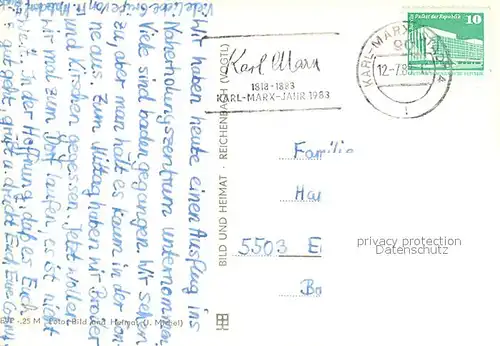 Viele liebe Grüße von
Wir haben heute einen Ausflug ins
Naherholungszentrum unternommen.
Viele sind baden gegangen. Wir sehen
zu, aber man hält es kaum in der Son-
ne aus. Zum Mittag haben wir
und Kirschen gegessen. Jetzt wollen
wir mal zum laufen, es ist nicht
weit. In der Hoffnung, daß es Euch
gut geht, grüßt u. drückt Euch Eure
EVP -.25 M Foto: Bild und Heimat (J. Michel)
BILD UND HEIMAT · REICHENBACH (VOGTL)
Karl Marx
1818-1883
KARL-MARX-JAHR 1983
KARL-MARX-STADT
12.-7.8
Palast der Republik
10
DDR
Familie
Ha
5503 E
Ba
privacy protection
Datenschutz